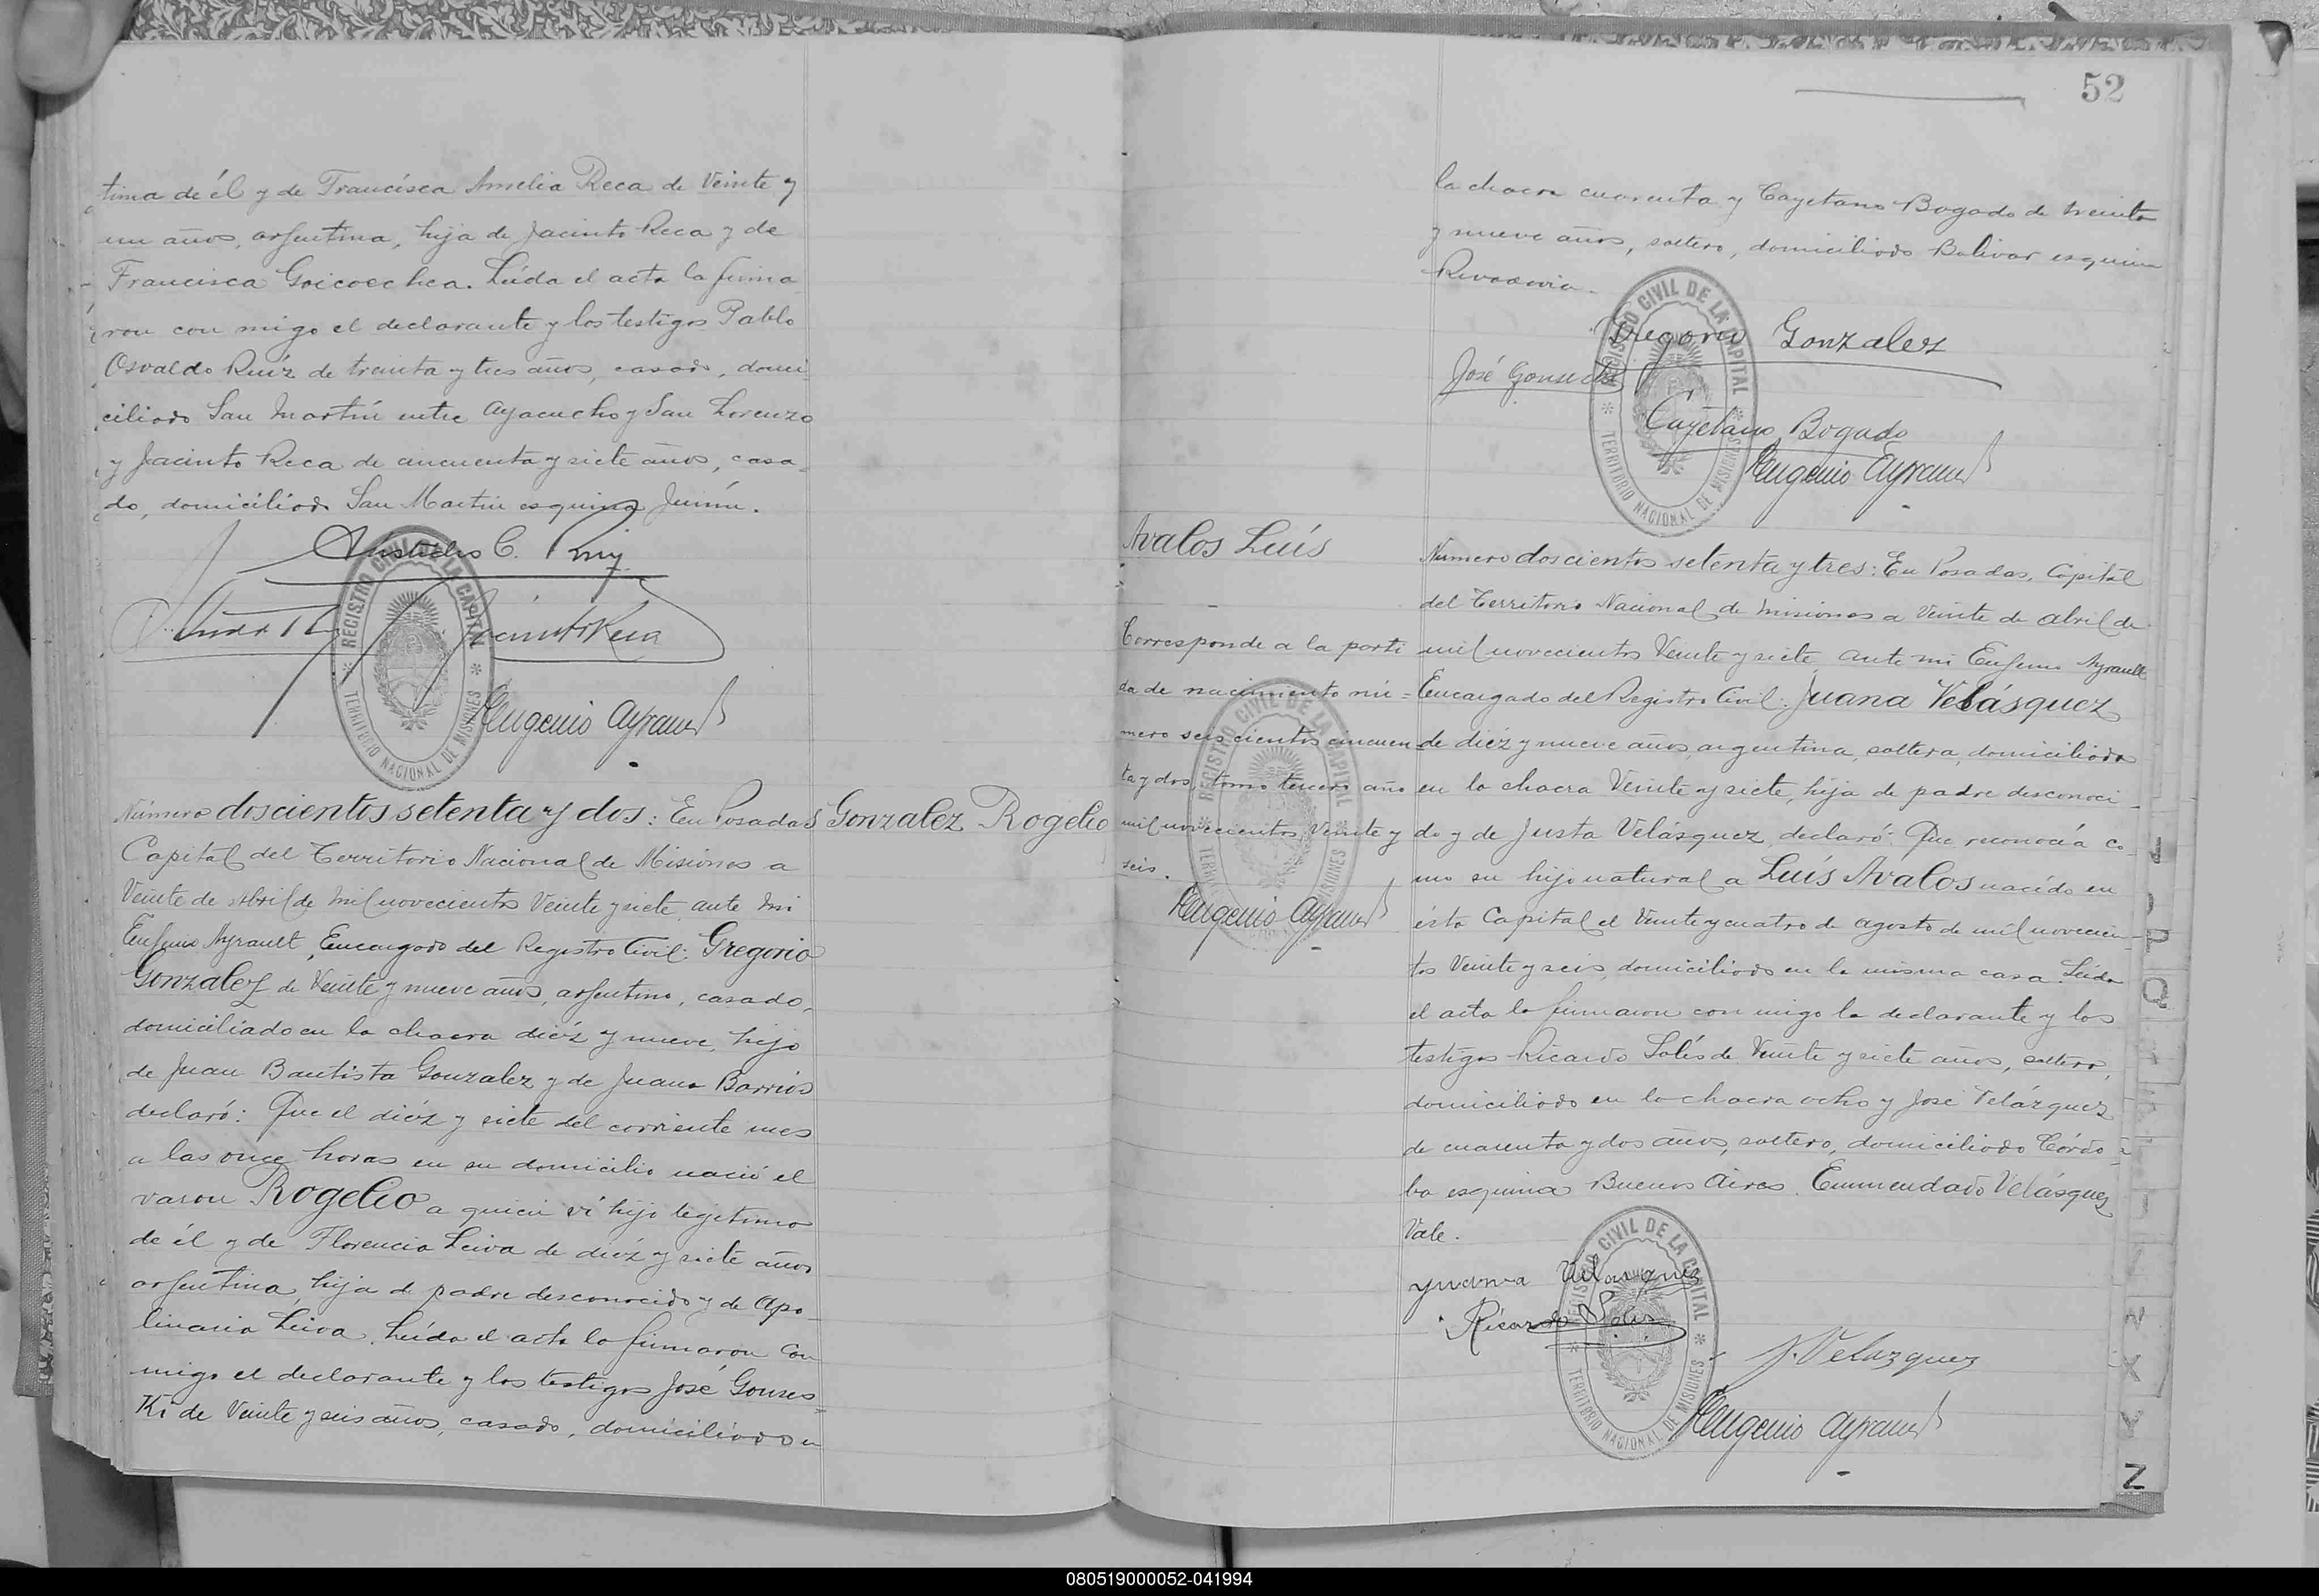 tima de él y de Francisca Amelia Reca de Veinte y
un años, argentina, hija de Jacinto Reca y de
Francisca Goicoechea. Leída el acta la firma
ron con migo el declarante y los testigos Pablo
Osvaldo Ruíz de treinta y tres años, casado, domi-
ciliado San Martín entre Ayacucho y San Lorenzo
y Jacinto Reca de cincuenta y siete años, casa-
do, domiciliado San Martin esquina Junín.
C. Ruiz
Jacinto Reca
REGISTRO CIVIL DE LA CAPITAL
TERRITORIO NACIONAL DE MISIONES
Eugenio Ayrault
Número doscientos setenta y dos: En Posadas
Gonzalez Rogelio
Capital del Territorio Nacional de Misiones a
Veinte de Abril de mil novecientos Veinte y siete, ante mi
Eugenio Ayrault, Encargado del Registro Civil: Gregorio
Gonzalez de Veinte y nueve años, argentino, casado,
domiciliado en la chacra diéz y nueve, hijo
de Juan Bautista Gonzalez y de Juana Barrios
declaró: Que el diéz y siete del corriente mes
a las once horas en su domicilio nació el
varon Rogelio a quien ví hijo legitimo
de él y de Florencia Leiva de diéz y siete años
argentina, hija de padre desconocido y de Apo-
linaria Leiva. Leída el acta la firmaron con
migo el declarante y los testigos José Gonses-
Ki de Veinte y seis años, casado, domiciliado en
52
la chacra cuarenta y Cayetano Bogado de treinta
y nueve años, soltero, domiciliado Bolivar esquina
Rivadavia.
REGISTRO CIVIL DE LA CAPITAL
TERRITORIO NACIONAL DE MISIONES
Gregorio Gonzalez
José
Cayetano Bogado
Eugenio Ayrault
Avalos Luís
Corresponde a la parti
da de nacimiento nú=
mero seis cientos cincuen
ta y dos, tomo tercero año
mil novecientos Veinte y
seis.
REGISTRO CIVIL DE LA CAPITAL
Eugenio Ayrault
Número doscientos setenta y tres: En Posadas, Capital
del Territorio Nacional de Misiones a Veinte de abril de
mil novecientos Veinte y siete, ante mi Eugenio Ayrault
Encargado del Registro Civil: Juana Velásquez
de diéz y nueve años, argentina, soltera, domiciliada
en la chacra Veinte y siete, hija de padre desconoci-
do y de Justa Velásquez, declaró: Que reconocía co-
mo su hijo natural a Luís Avalos nacido en
ésta Capital el Veinte y cuatro de agosto de mil novecien-
tos Veinte y seis, domiciliado en la misma casa. Leída
el acta la firmaron con migo la declarante y los
testigos Ricardo Solís de Veinte y siete años, soltero,
domiciliado en la chacra ocho y José Velázquez
de cuarenta y dos años, soltero, domiciliado Córdo=
ba esquina Buenos Aires. Enmendado Velásquez
Vale.
Juana Velasquez
Ricardo Solis
REGISTRO CIVIL DE LA CAPITAL
TERRITORIO NACIONAL DE MISIONES
J. Velazquez
Eugenio Ayrault
Q
X
Y
Z
080519000052-041994